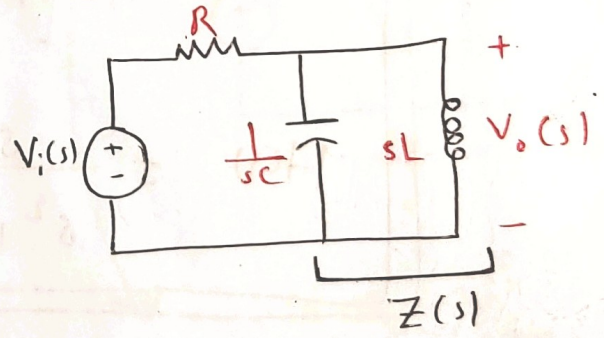 R
+
Vi(s)
+
-
1/sC
sL
Vo(s)
-
Z(s)